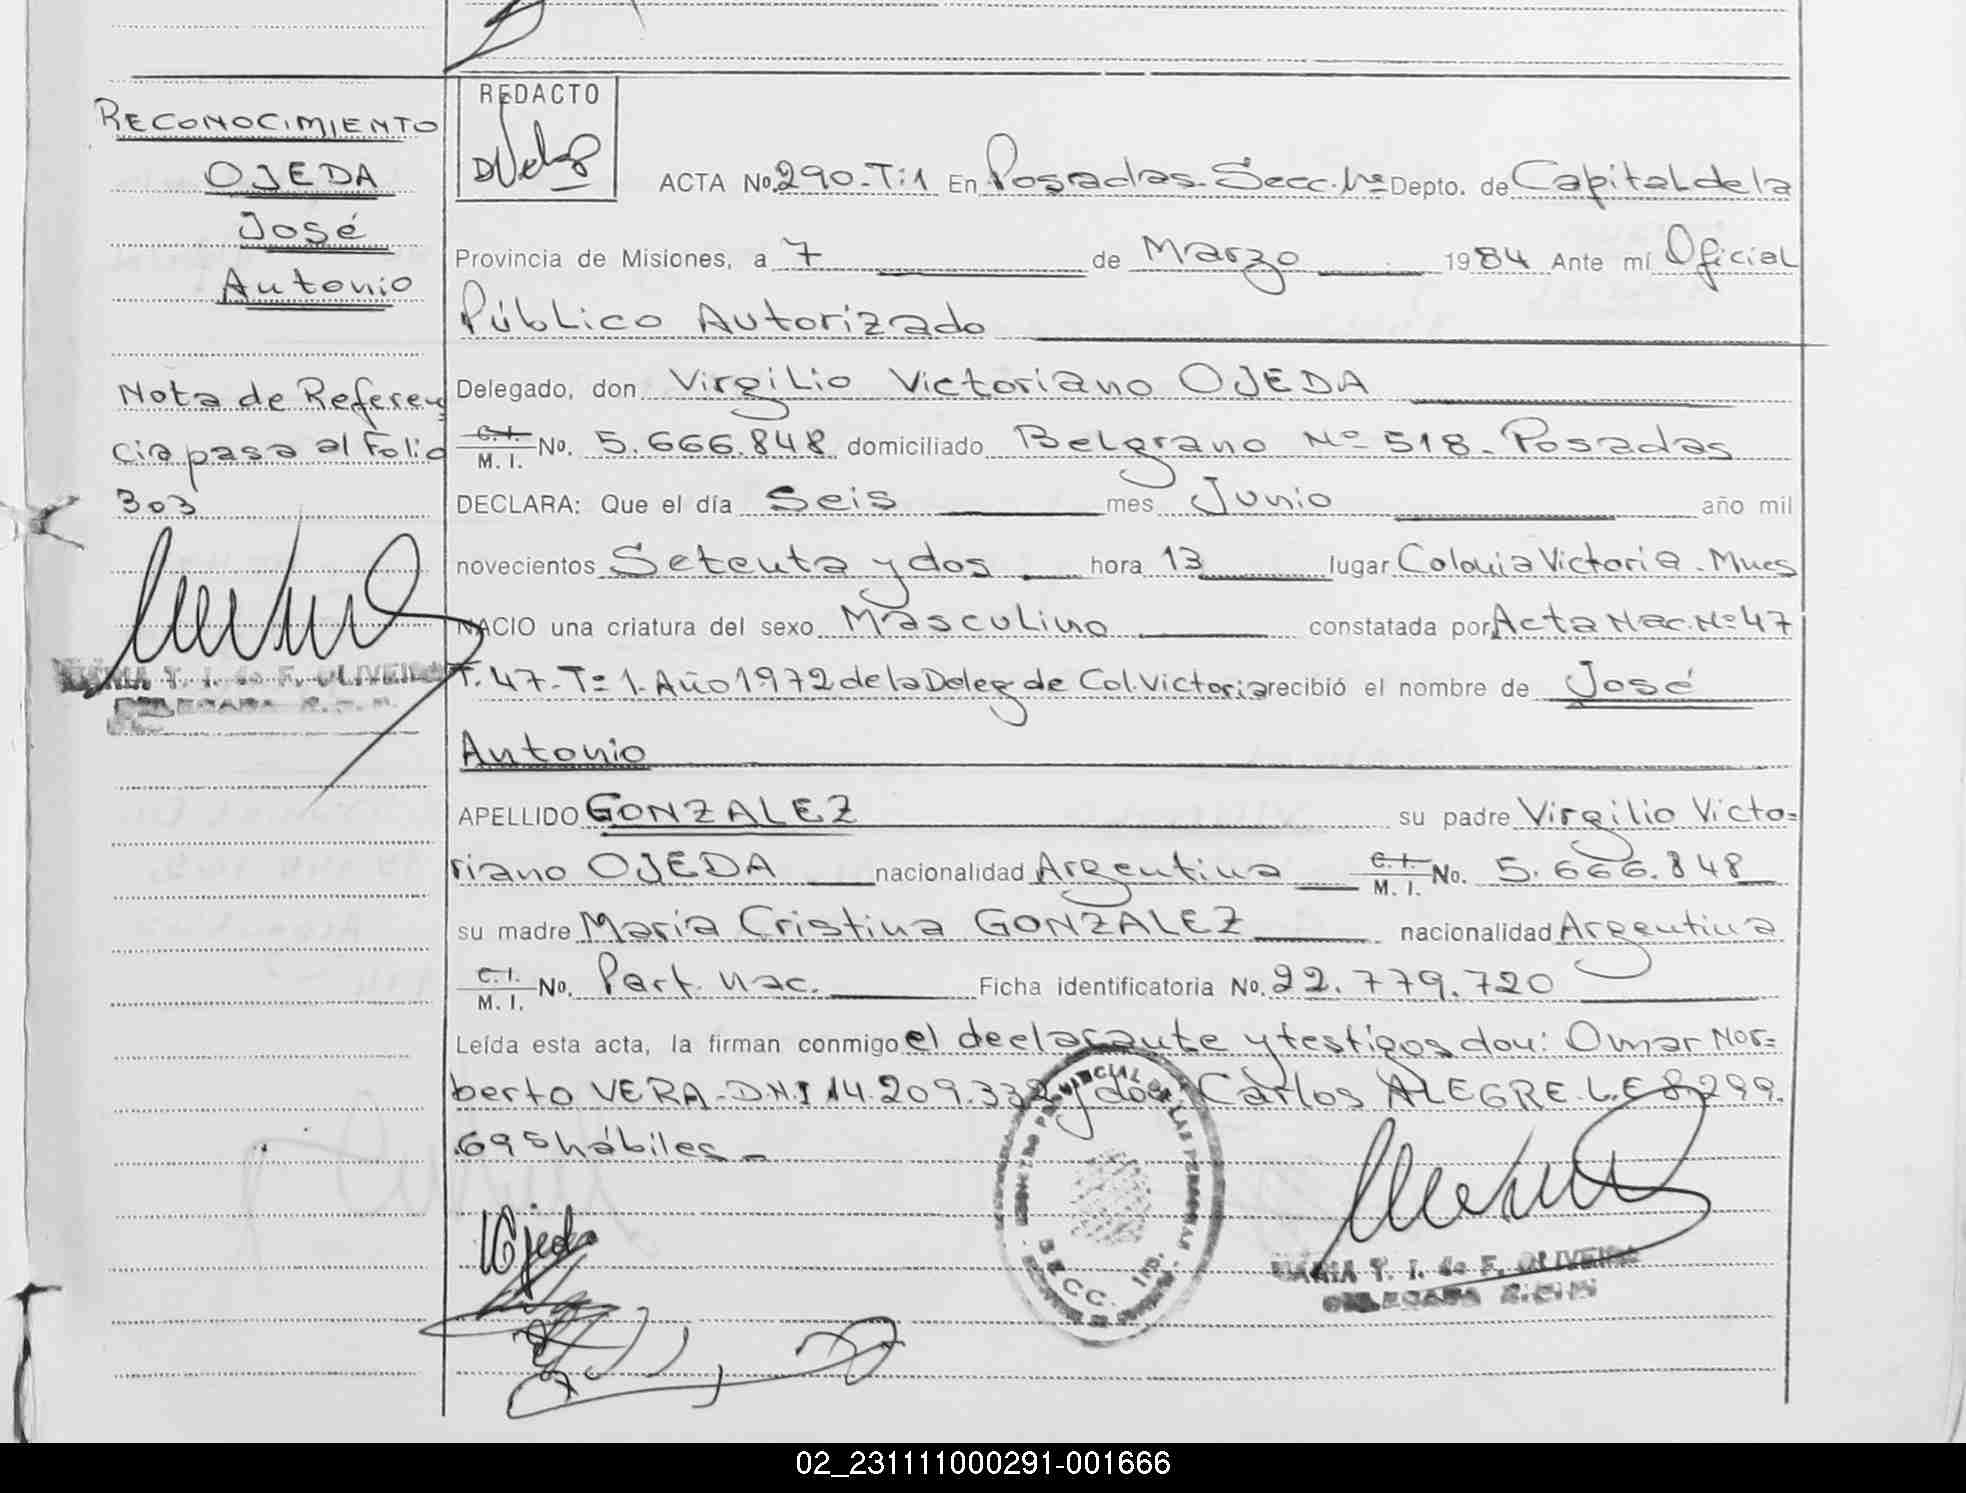 RECONOCIMIENTO
OJEDA
José
Antonio
Nota de Referen
cia pasa al Folio
303
MARIA T. I. de F. OLIVEIRA
DELEGADA
REDACTO
ACTA No. 290-T:1 En Posadas-Secc. 1ª Depto. de Capital de la
Provincia de Misiones, a 7 de Marzo 1984 Ante mí Oficial
Público Autorizado
Delegado, don Virgilio Victoriano OJEDA
C.I. M.I. No. 5.666.848 domiciliado Belgrano Nº 518- Posadas
DECLARA: Que el día Seis mes Junio año mil
novecientos Setenta y dos hora 13 lugar Colonia Victoria. Mnes
NACIO una criatura del sexo Masculino constatada por Acta Nac. Nº 47
F. 47- Tº 1. Año 1972 de la Deleg de Col. Victoria recibió el nombre de José
Antonio
APELLIDO GONZALEZ su padre Virgilio Victo=
riano OJEDA nacionalidad Argentina C.I. M.I. No. 5.666.848
su madre María Cristina GONZALEZ nacionalidad Argentina
C.I. M.I. No. Part. nac. Ficha identificatoria No. 22.779.720
Leída esta acta, la firman conmigo el declarante y testigos don: Omar Nor=
berto VERA-D.N.I 14.209.332 y don Carlos ALEGRE L.E 8.299.
695 hábiles-
Ojeda
REGISTRO PROVINCIAL DE LAS PERSONAS
SECC.
MARIA T. I. de F. OLIVEIRA
DELEGADA
02_231111000291-001666